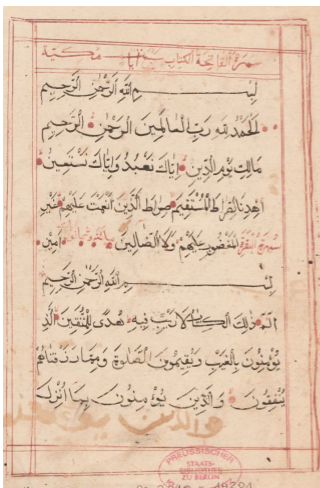 سورة الفاتحة الكتاب سبع ايات مكية
بسم الله الرحمن الرحيم
الحمد لله رب العالمين الرحمن الرحيم
مالك يوم الدين اياك نعبد واياك نستعين
اهدنا الصراط المستقيم صراط الذين انعمت عليهم غير
المغضوب عليهم ولا الضالين امين
سورة البقرة
بسم الله الرحمن الرحيم
الم ذلك الكتاب لا ريب فيه هدى للمتقين الذ
يؤمنون بالغيب ويقيمون الصلوة ومما رزقناهم
ينفقون والذين يؤمنون بما انزل
والذين يو
PREUSSISCHER
STAATS-
BIBLIOTHEK
ZU BERLIN